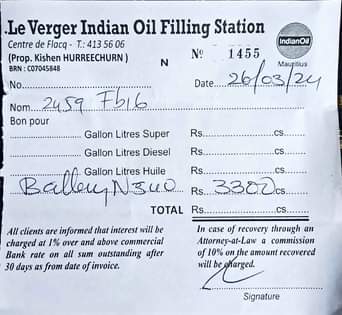 Le Verger Indian Oil Filling Station
Centre de Flacq - T.: 413 56 06
(Prop. Kishen HURREECHURN)
BRN : C07045848
N
Nº 1455
IndianOil
Mauritius
No.
Date 26/03/24
Nom 2459 Fb16
Bon pour
Gallon Litres Super Rs. cs.
Gallon Litres Diesel Rs. cs.
Gallon Litres Huile Rs. cs.
Battery N340 Rs. 3300 cs.
TOTAL Rs. cs.
All clients are informed that interest will be
charged at 1% over and above commercial
Bank rate on all sum outstanding after
30 days as from date of invoice.
In case of recovery through an
Attorney-at-Law a commission
of 10% on the amount recovered
will be charged.
Signature